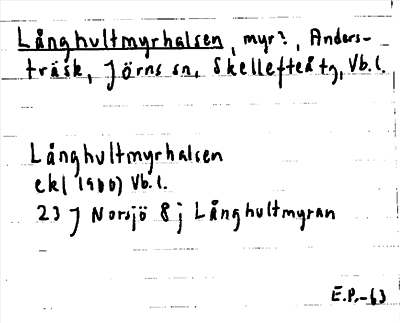 Långhultmyrhalsen, myr?, Anders-
träsk, Jörns sn, Skellefteå tg, Vb. l.
Långhultmyrhalsen
ekl (1966) Vb. l.
23 J Norsjö 8 j Långhultmyran
E.P.-63